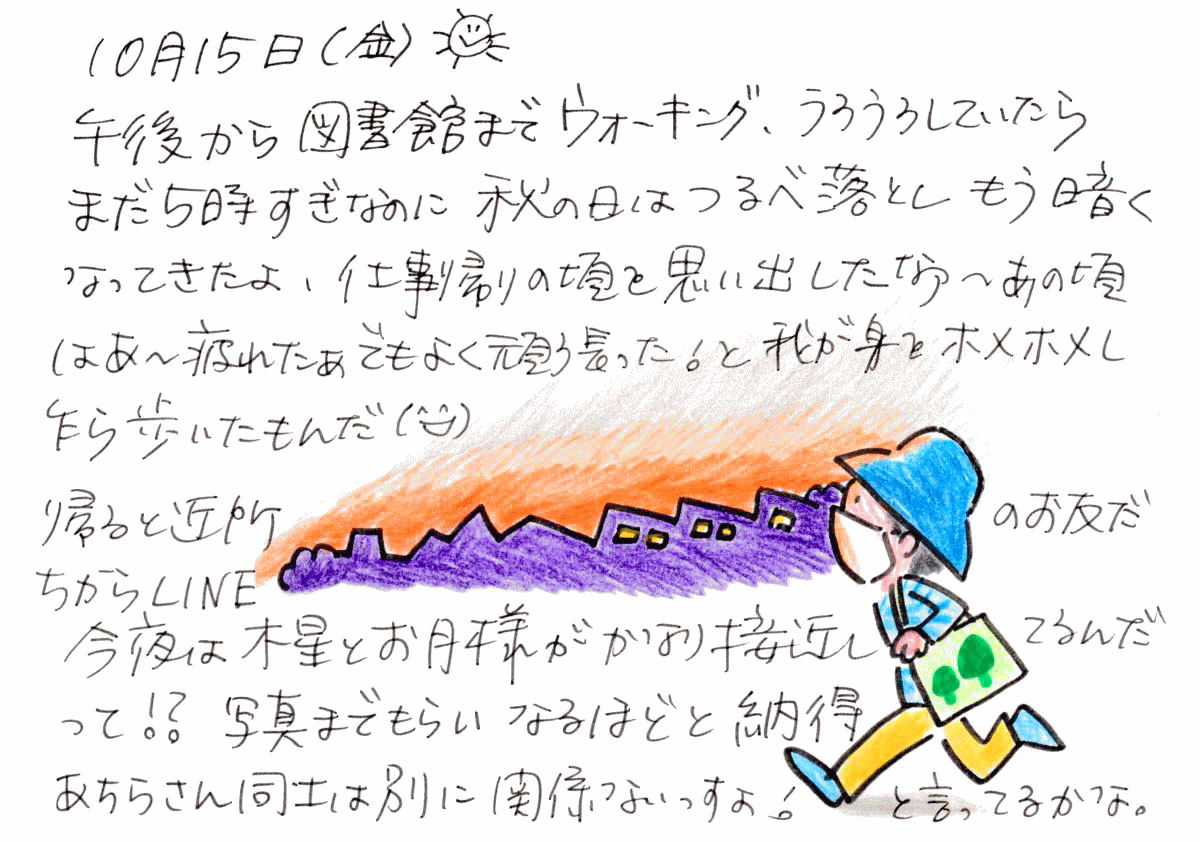 10月15日(金)
午後から図書館までウォーキング、うろうろしていたら
まだ5時すぎなのに 秋の日はつるべ落とし もう暗く
なってきたよ、仕事帰りの頃を思い出したなァ〜あの頃
はあ〜疲れたぁでもよく頑張った!と我が身をホメホメし
乍ら歩いたもんだ(
帰ると近所のお友だ
ちからLINE
今夜は木星とお月様がかなり接近してるんだ
って!? 写真までもらい なるほどと納得
あちらさん同士は別に関係ないっすよ! と言ってるかな。